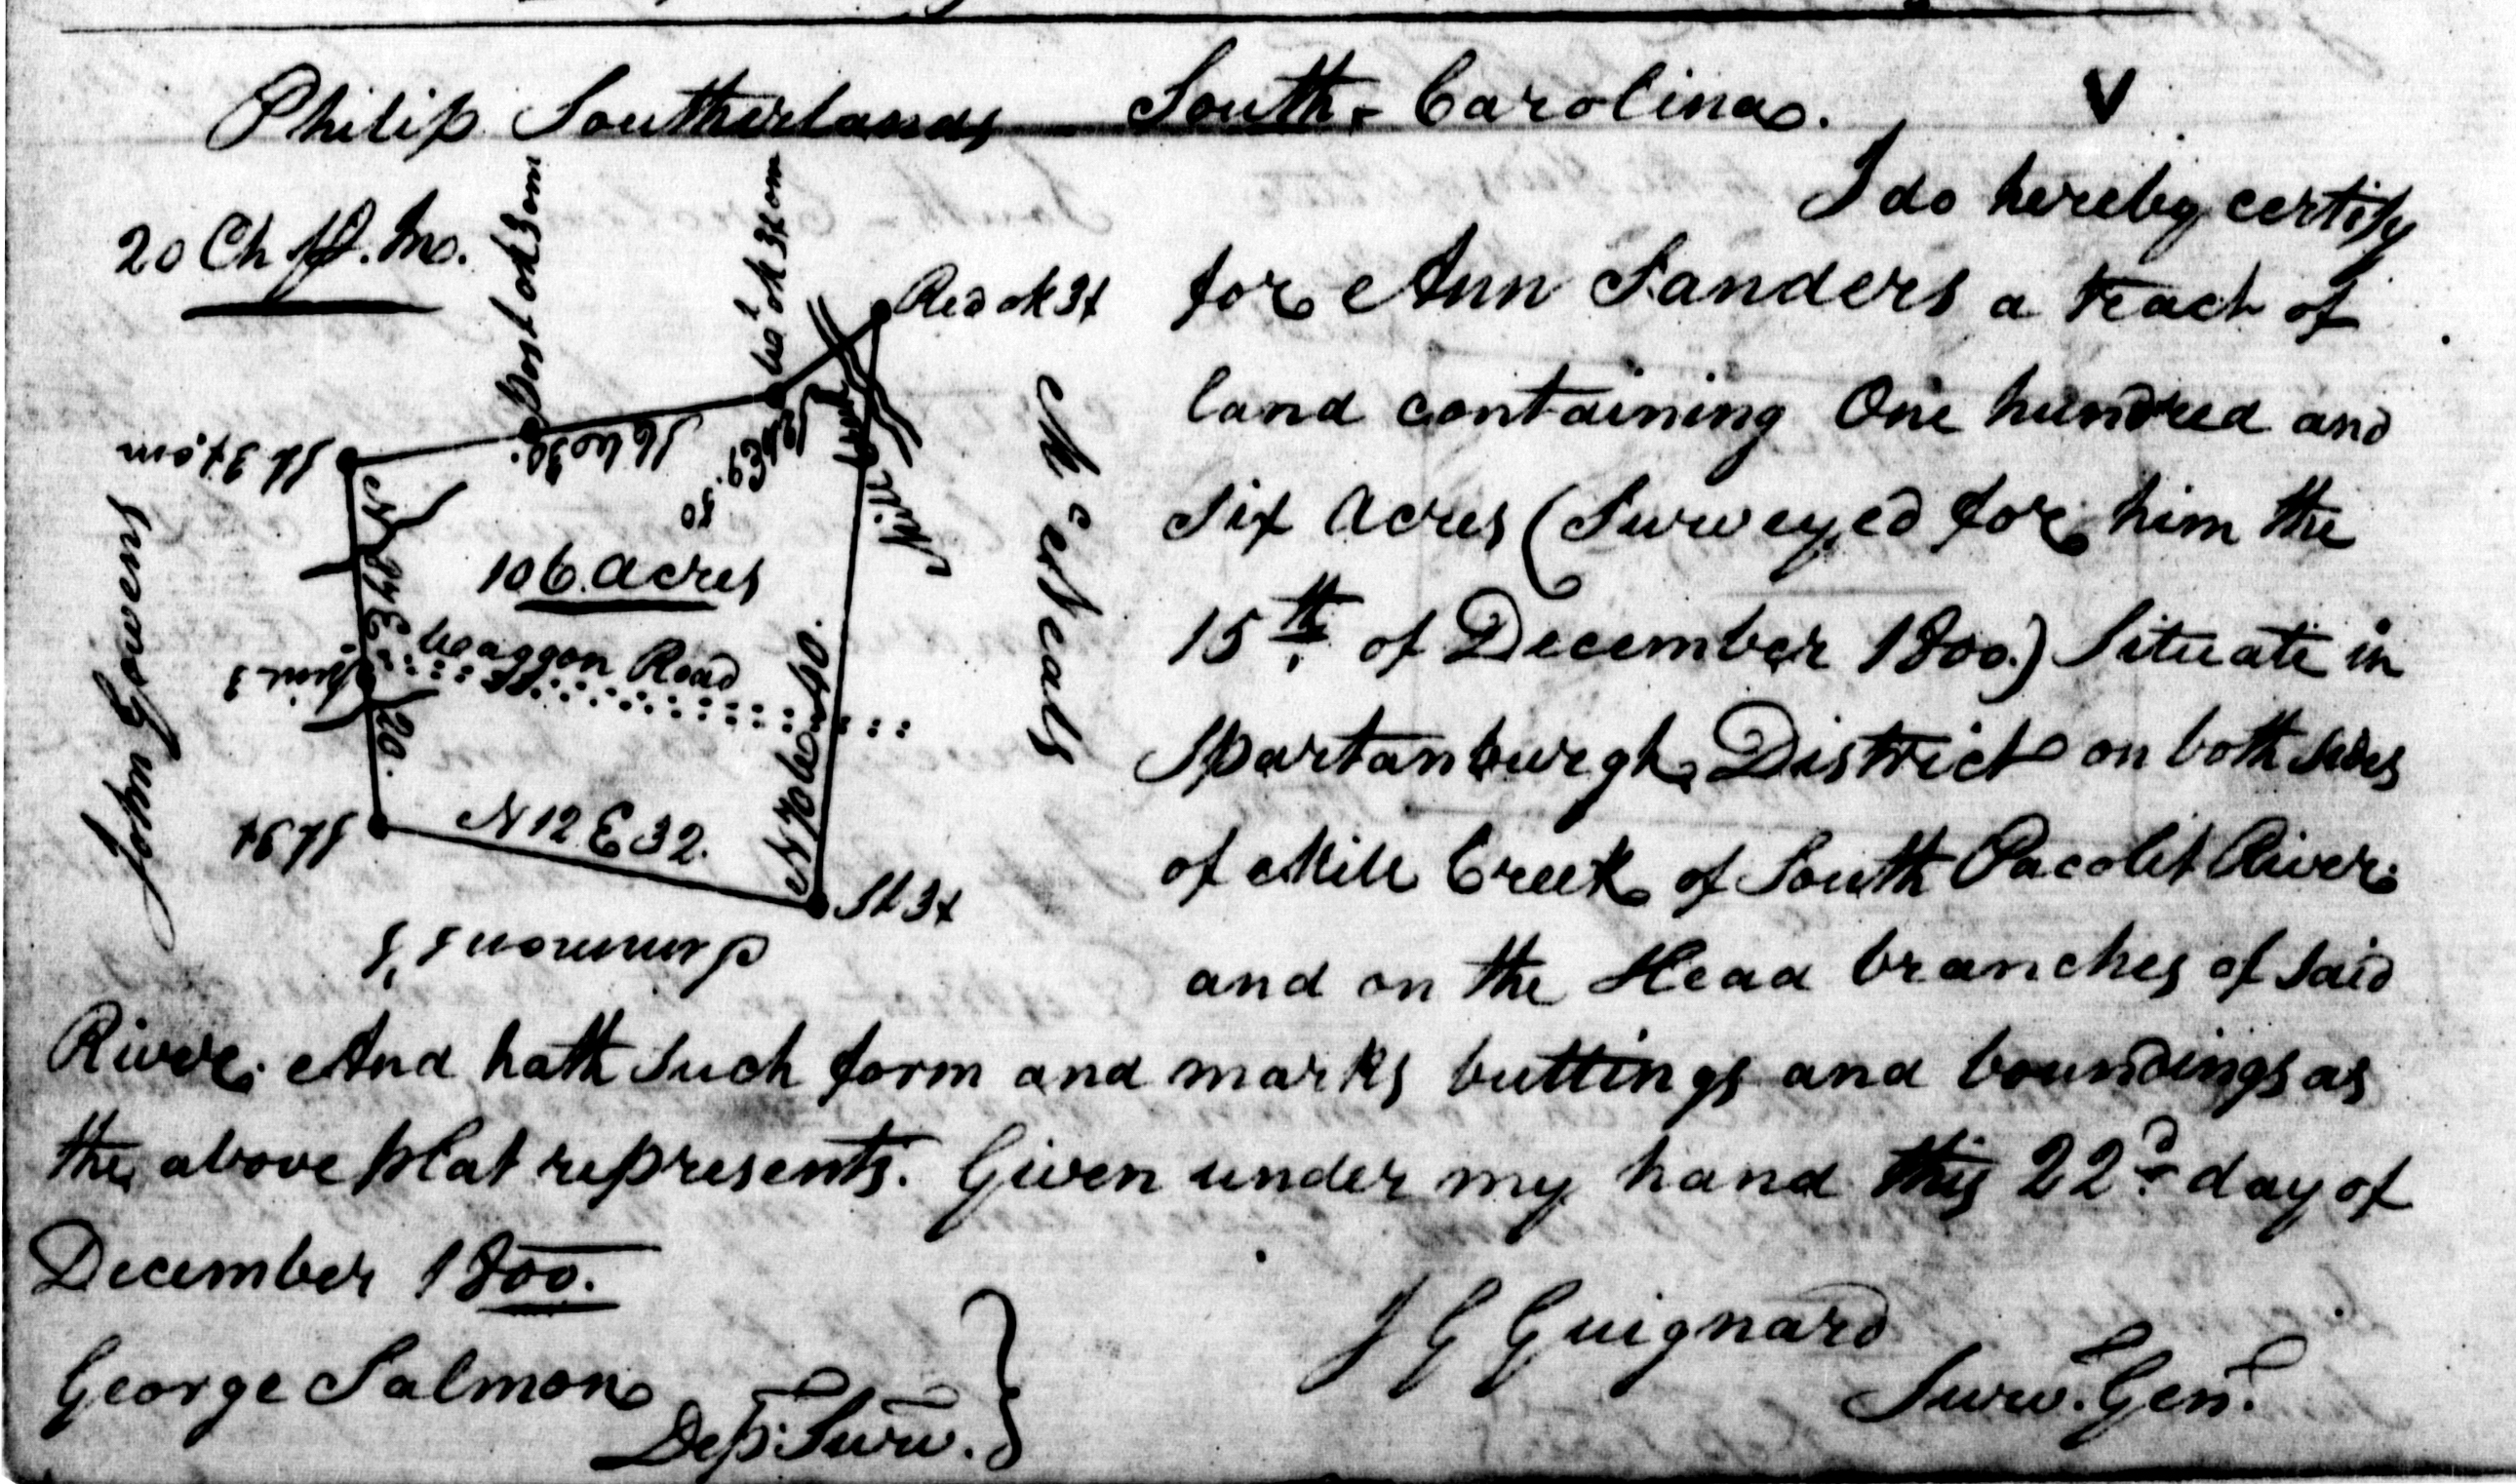 Philip Southerlands South-Carolina. V
I do hereby certify
20 Ch p. In.
for Ann Sanders a tract of
Red ok 3x
land containing One hundred and
Post ok 3 om
Wt ok 3x om
St 3x om
six acres (Surveyed for him the
106. acres
15th. of December 1800.) Situate in
Waggon Road
Spartanburgh District on both sides
John Gowens
McNeals
Mill
N 12 E 32.
of Mill Creek of South Pacolet River
St 3x
and on the Head branches of said
River. And hath such form and marks buttings and boundings as
the above plat represents. Given under my hand this 22d day of
December 1800.
J G Guignard
Surv. Genl.
George Salmon
Dep: Surv.